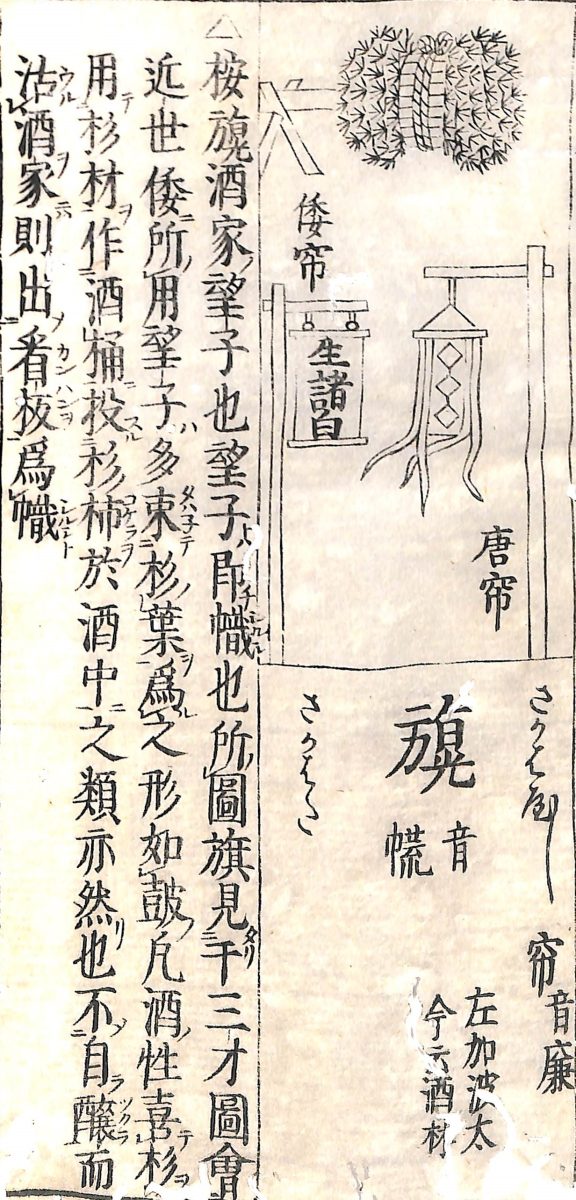 さかばやし
帘音廉
左加波太
今云酒林
音
さかはた
唐帘
生諸白
倭帘
△按酒家望子也望子即幟也所圖旗見于三才圖會
近世倭所用望子多束杉葉爲之形如皷凡酒性喜杉
用杉材作酒桶投杉柿於酒中之類亦然也不自釀而
沽酒家則出看板爲幟